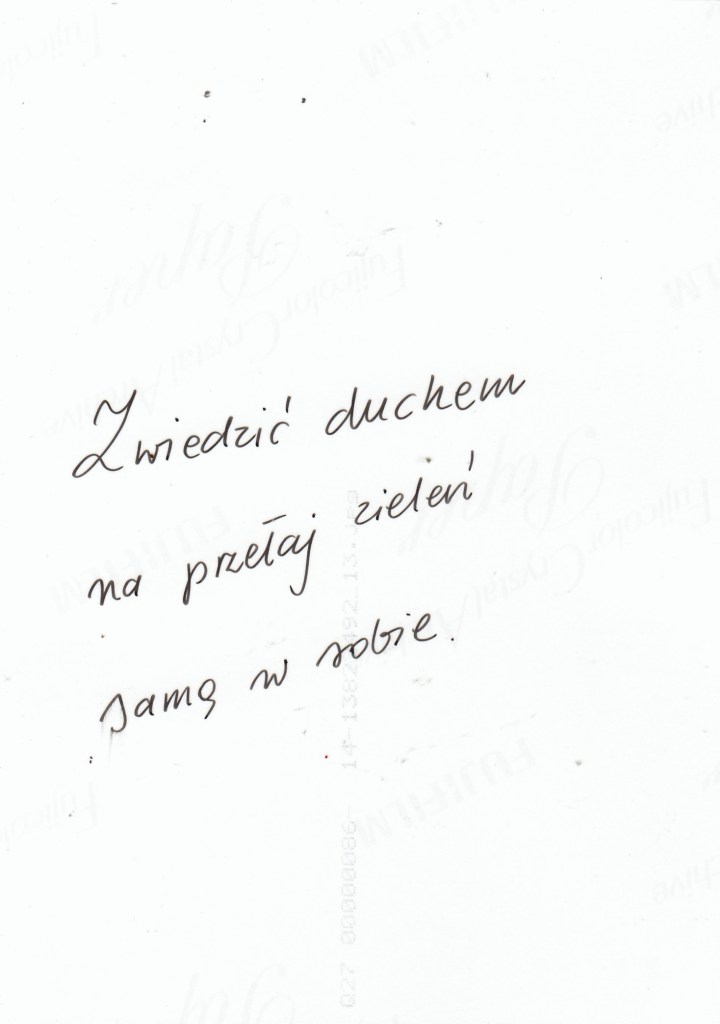 Zwiedzić duchem
na przełaj zieleń
samą w sobie.